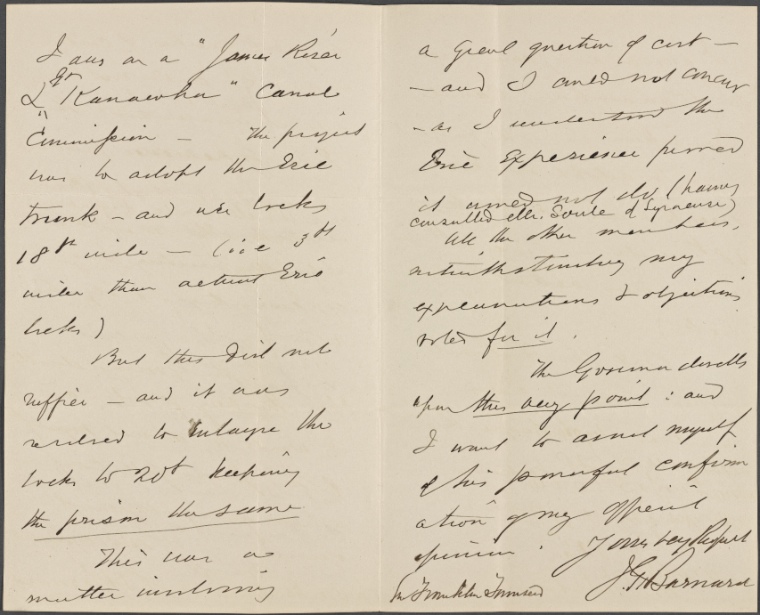 I am on a "James River
& Kanawha" Canal
Commission — the project
was to adopt the Erie
trunk — and use locks
18ft wide — (i.e. 3ft
wider than actual Erie
locks)
But this did not
suffice — and it was
resolved to enlarge the
locks to 20ft keeping
the prism the same
This was a
matter involving
a great question of cost —
— and I could not concur
— as I understood the
Erie Experience proved
it would not do (having
consulted Mr. Soule of Syracuse)
All the other members,
notwithstanding my
explanations & objections
voted for it.
The Governor dwells
upon this very point : and
I want to avail myself
of his powerful confirm
ation of my official
opinion. Yours very Respect
J G Barnard
Franklin Townsend